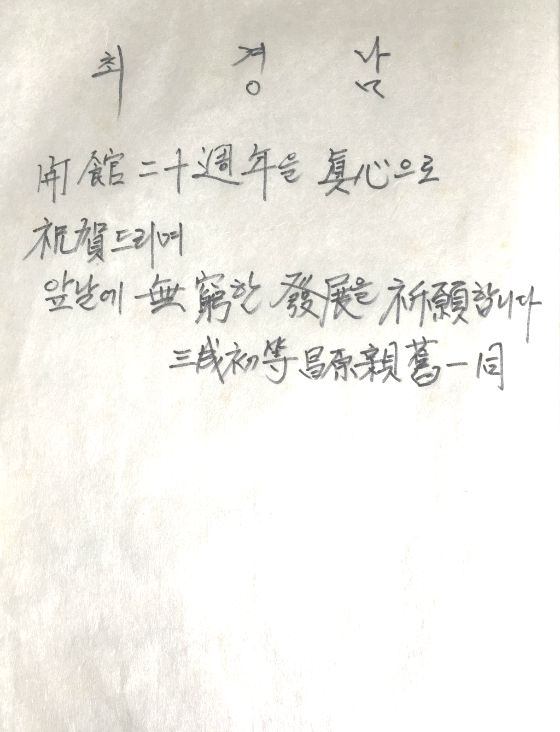 최 경 남
開館二十週年을 眞心으로
祝賀드리며
앞날에 無窮한 發展을 祈願합니다
三成初等昌原親舊一同